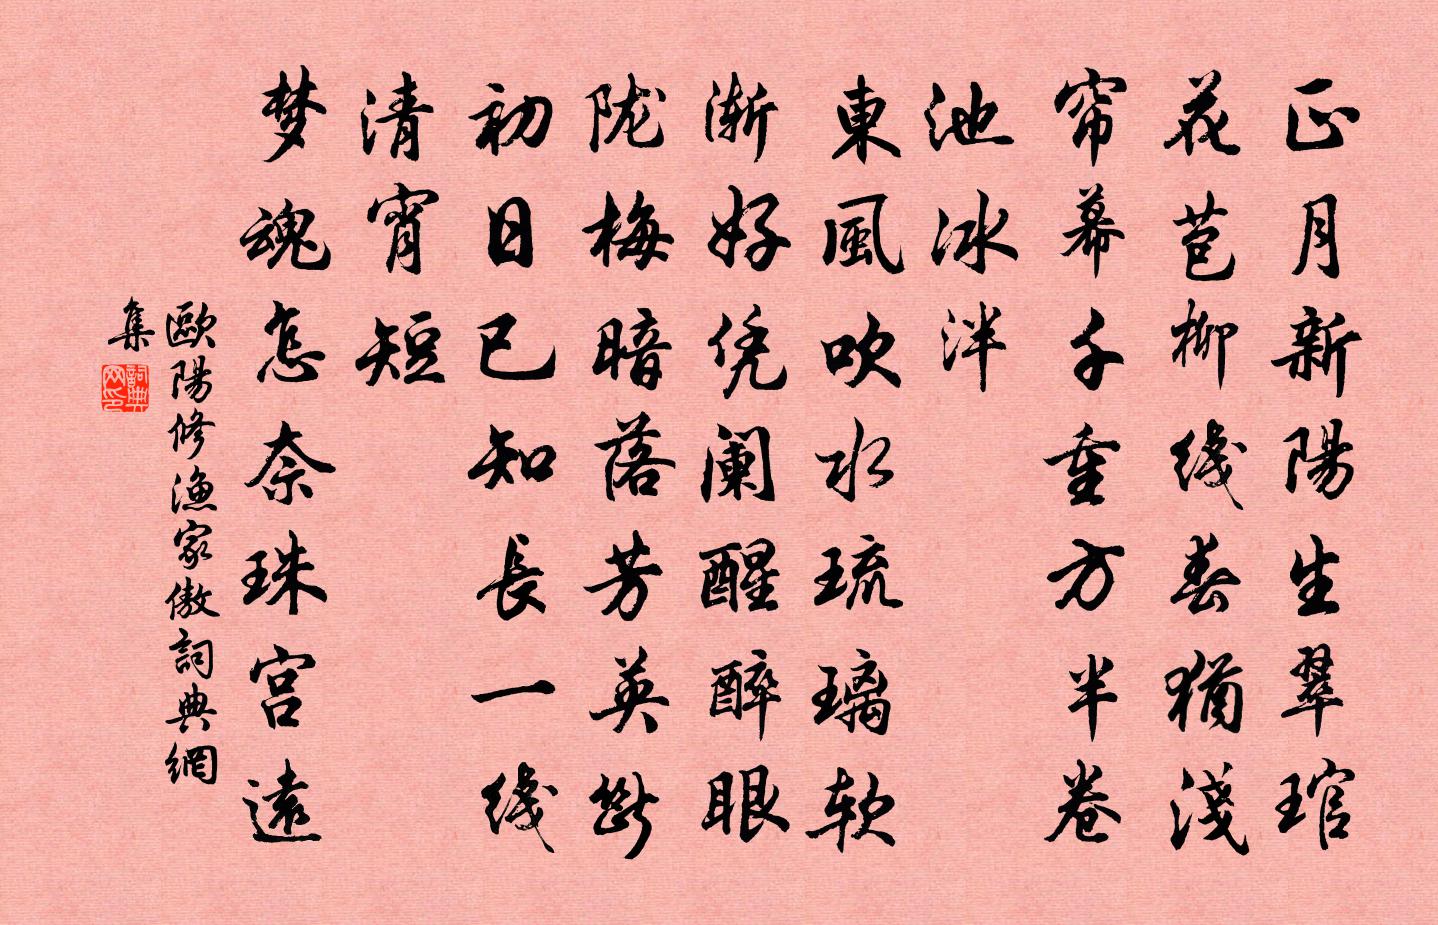 正月新陽生翠琯
花苞柳线春猶淺
帘幕千重方半卷
池冰泮
東風吹水琉璃软
渐好凭阑醒醉眼
陇梅暗落芳英斷
初日已知長一线
清宵短
梦魂怎奈珠宫遠
歐陽修漁家傲詞典網
集
詞典
网印